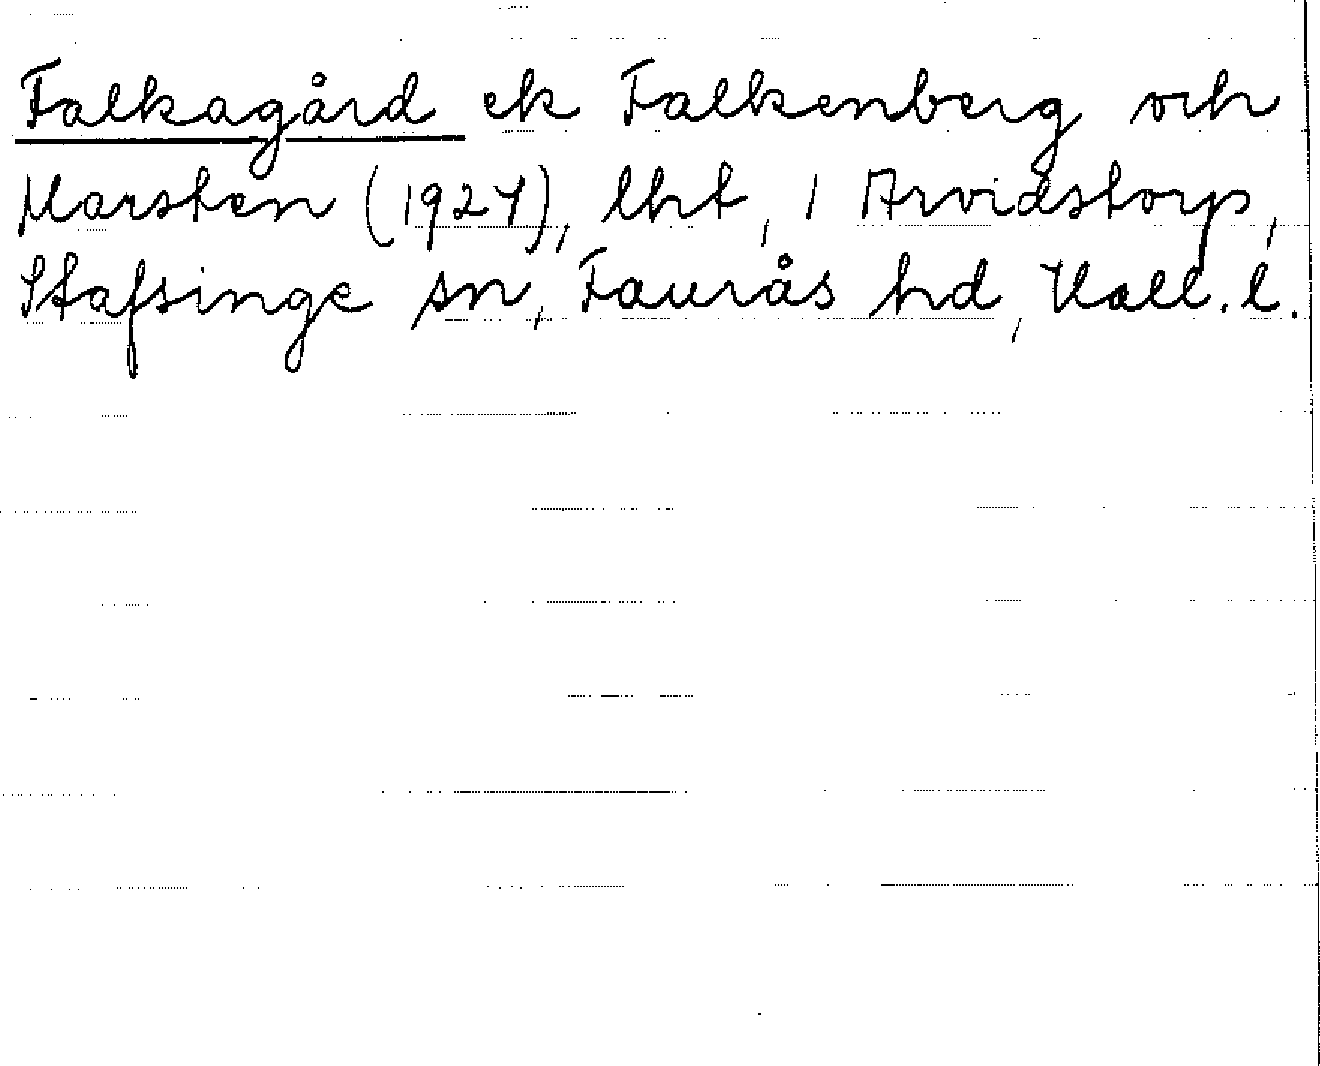 Falkagård ek Falkenberg och
Marsten (1927), lht, 1 Arvidstorp,
Stafsinge sn, Faurås hd, Hall. l.